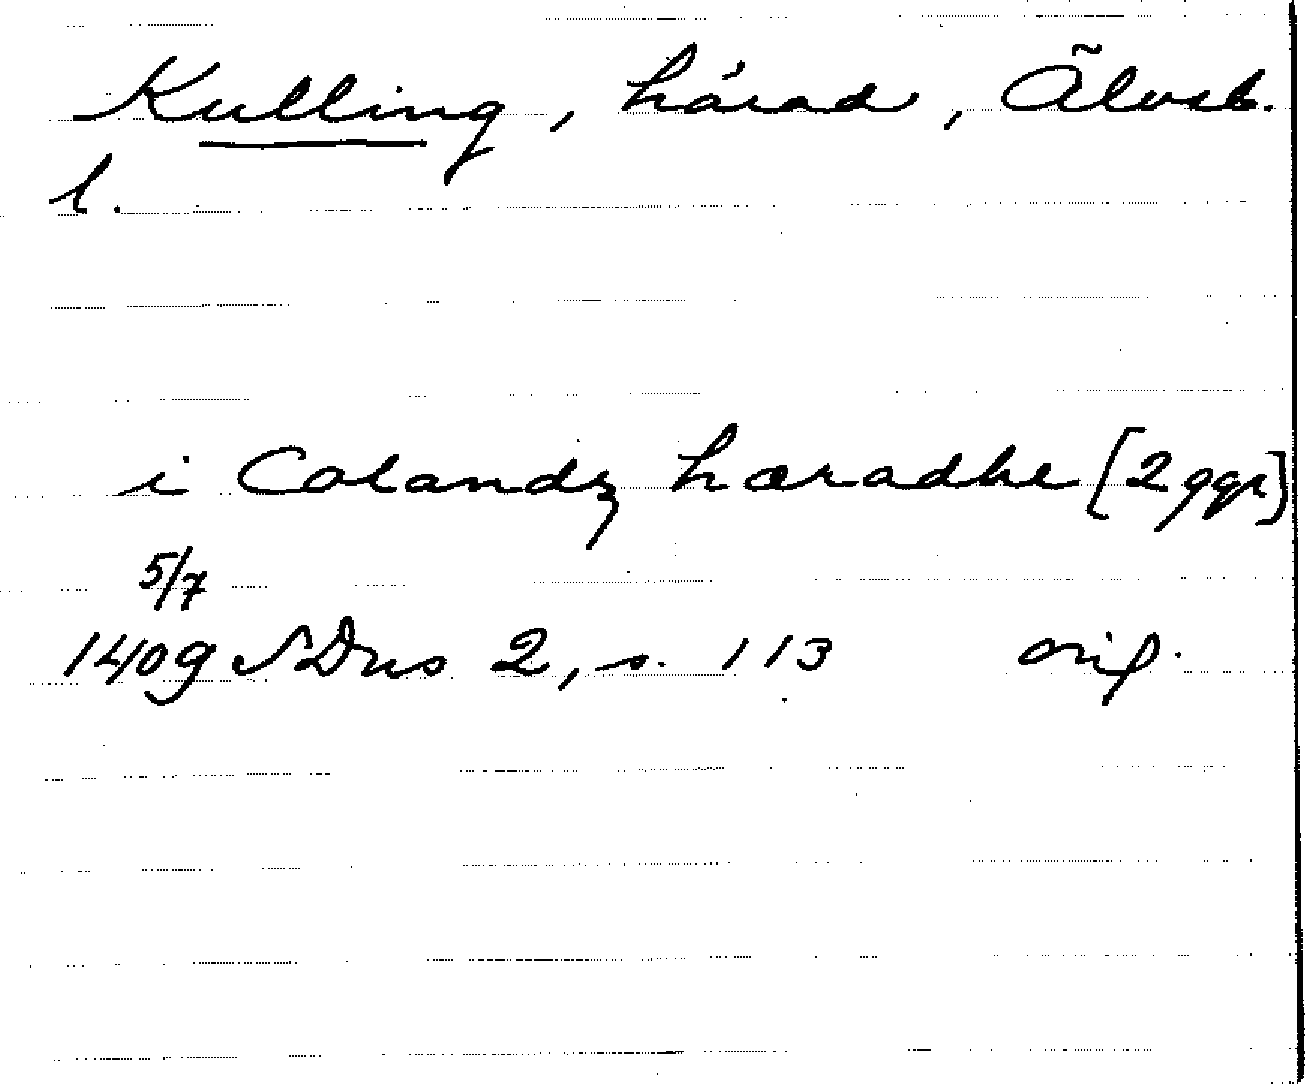 Kulling, härad, Älvsb.
l.
i Colandz hæradhe [2 ggr]
5/7
1409 SDns 2, s. 113 orig.